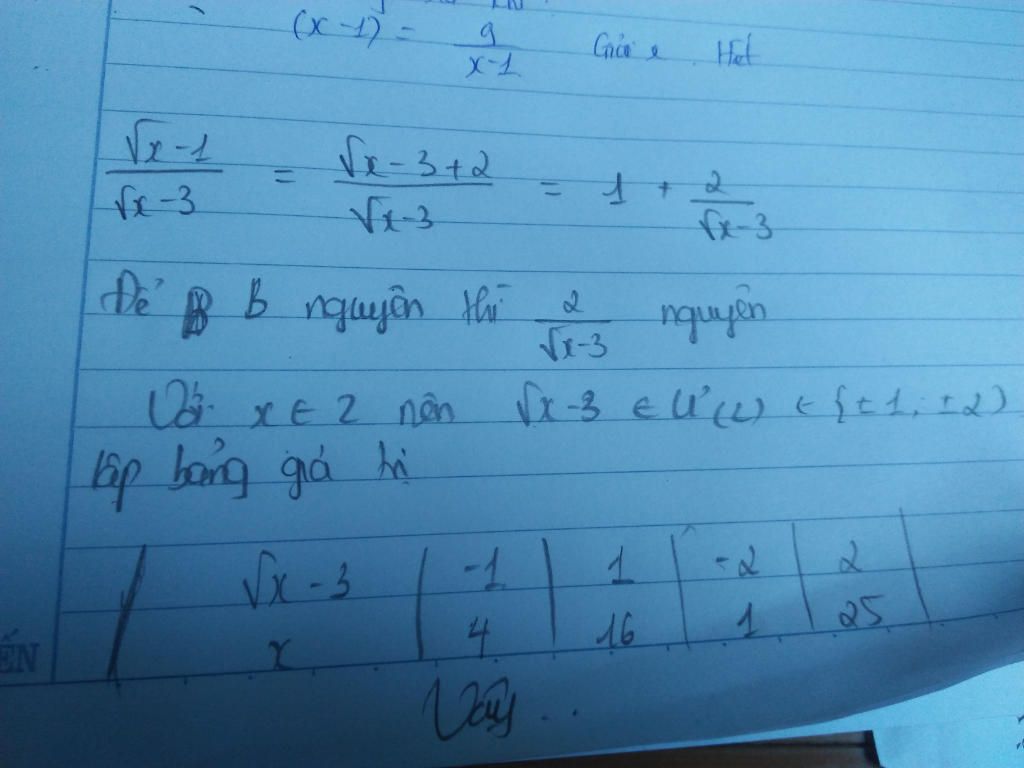 (x-1) = 9/(x-1) Giải Hết
(√x-1)/(√x-3) = (√x-3+2)/(√x-3) = 1 + 2/(√x-3)
Để B nguyên thì 2/(√x-3) nguyên
Với x ∈ Z nên √x-3 ∈ Ư(2) ∈ {±1; ±2)
lập bảng giá trị
√x - 3 | -1 | 1 | -2 | 2
x | 4 | 16 | 1 | 25
Vậy...